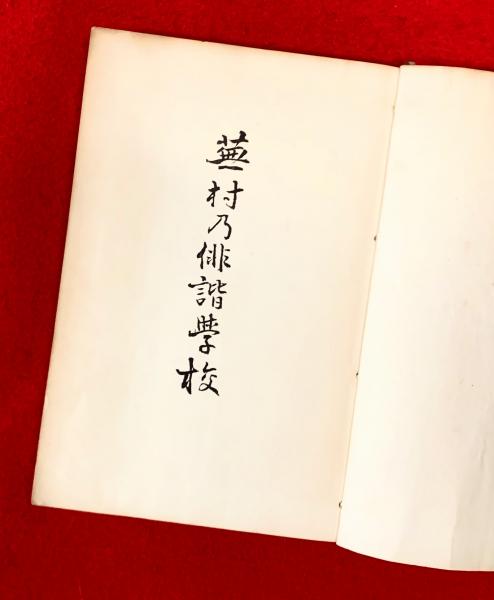 蕪村乃俳諧学校